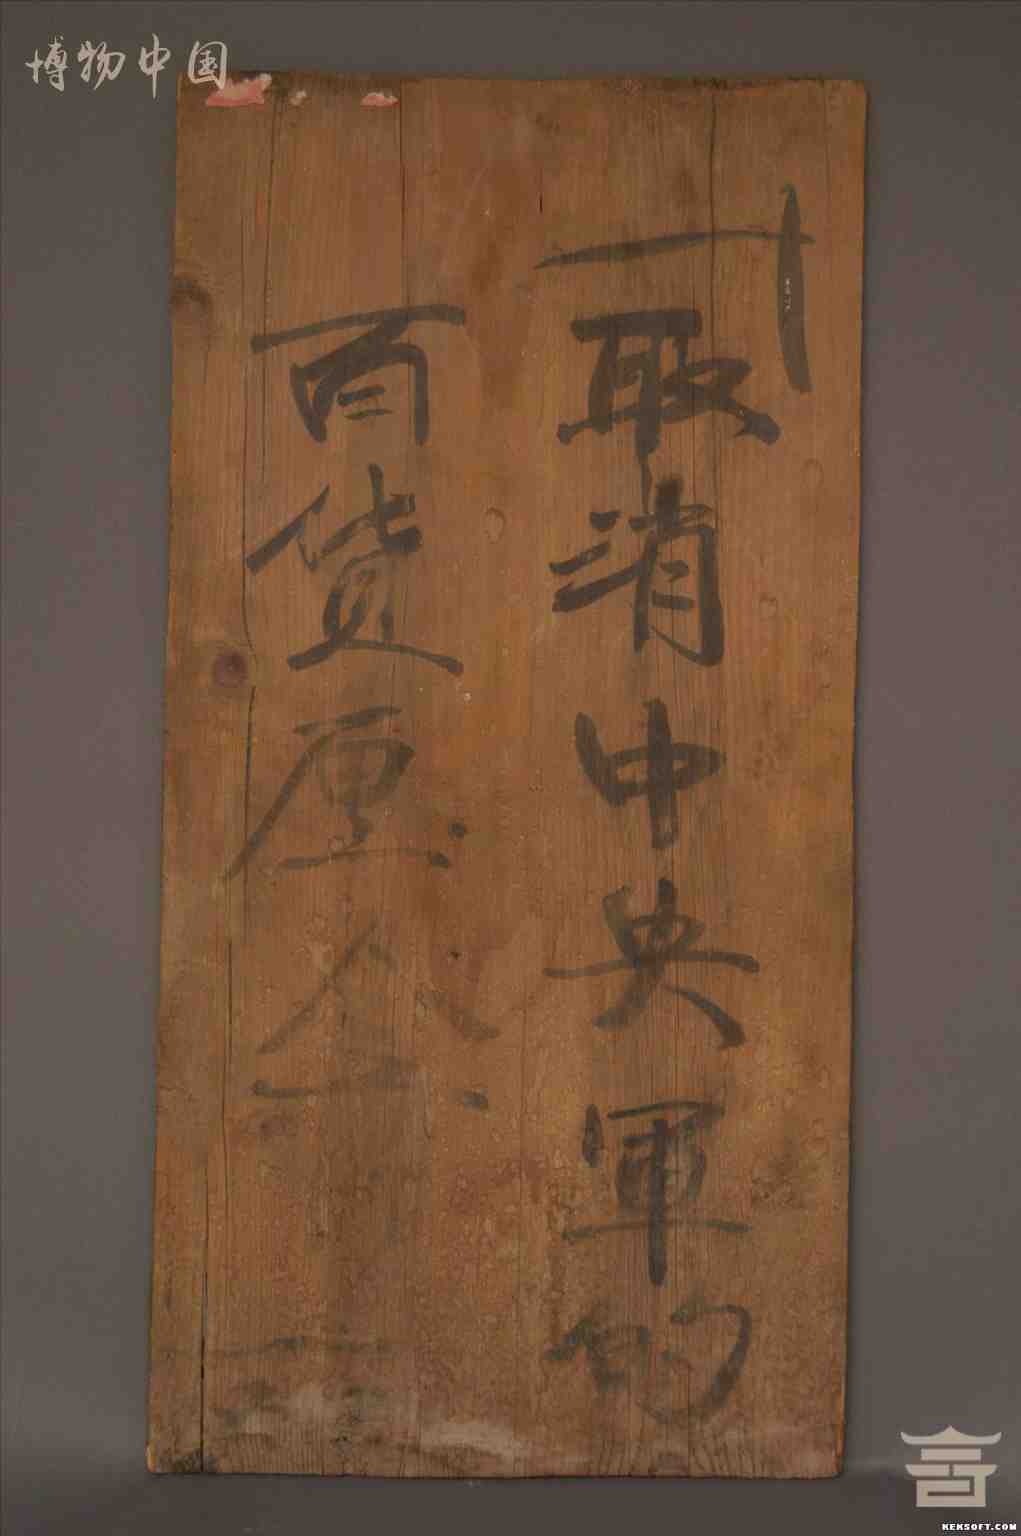 博物中国
取消中央軍的
百货厘金
KEKSOFT.COM